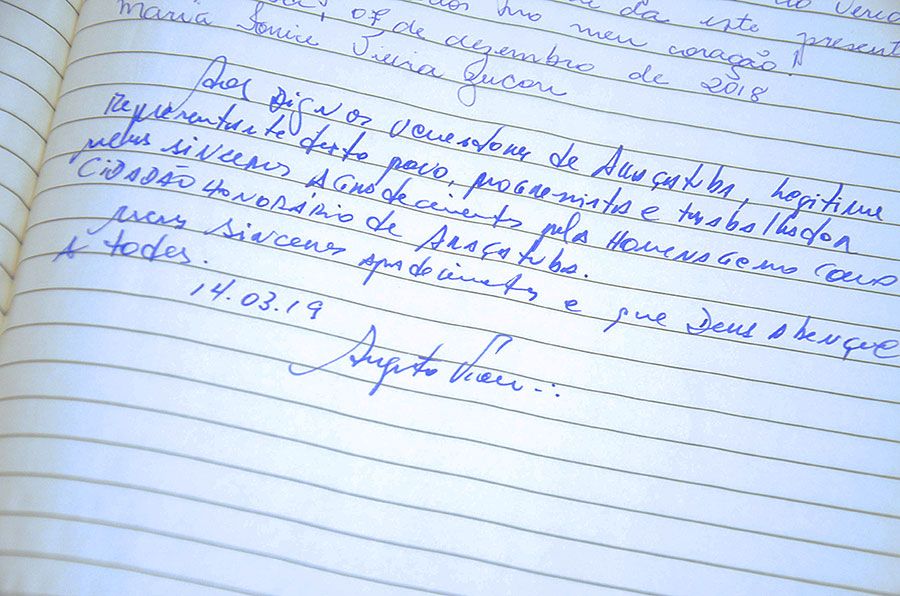 da este present
no meu coração!
07 de dezembro de 2018
Maria Vieira
Aos Dignos Vereadores de Araçatuba, legitimo
Representante desto povo, progressista e trabalhador
meus sinceros Agradecimentos pela Homenagem como
CIDADÃO HONORÁRIO de Araçatuba.
meus sinceros agradecimentos e que Deus abençoe
A todos.
14.03.19